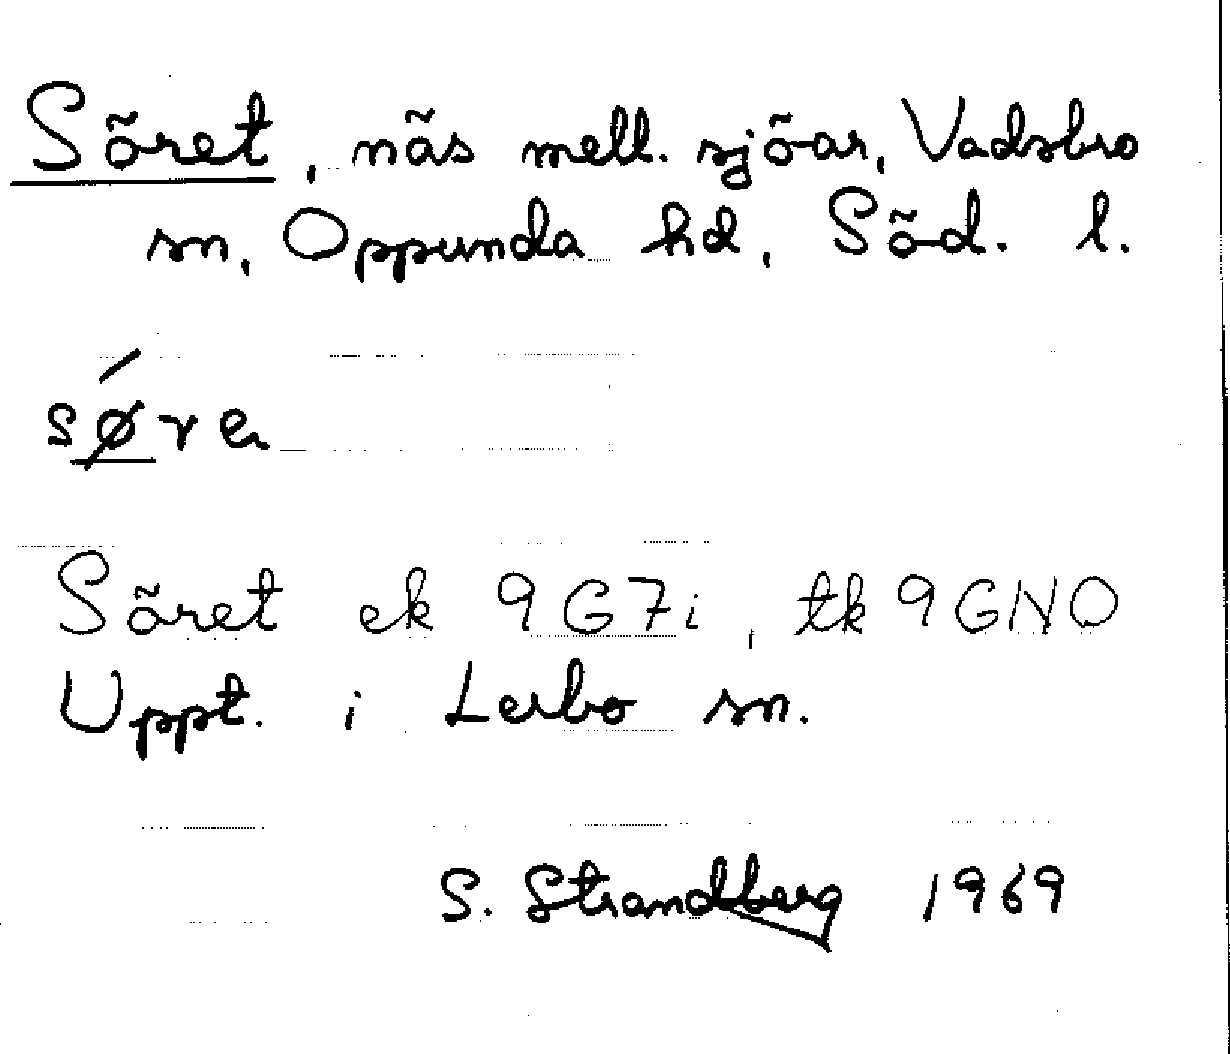 Söret, näs mell. sjöar, Vadsbro
sn, Oppunda hd, Söd. l.
søre
Söret ek 9G7i, tk 9GNO
Uppt. i Lerbo sn.
S. Strandberg 1969